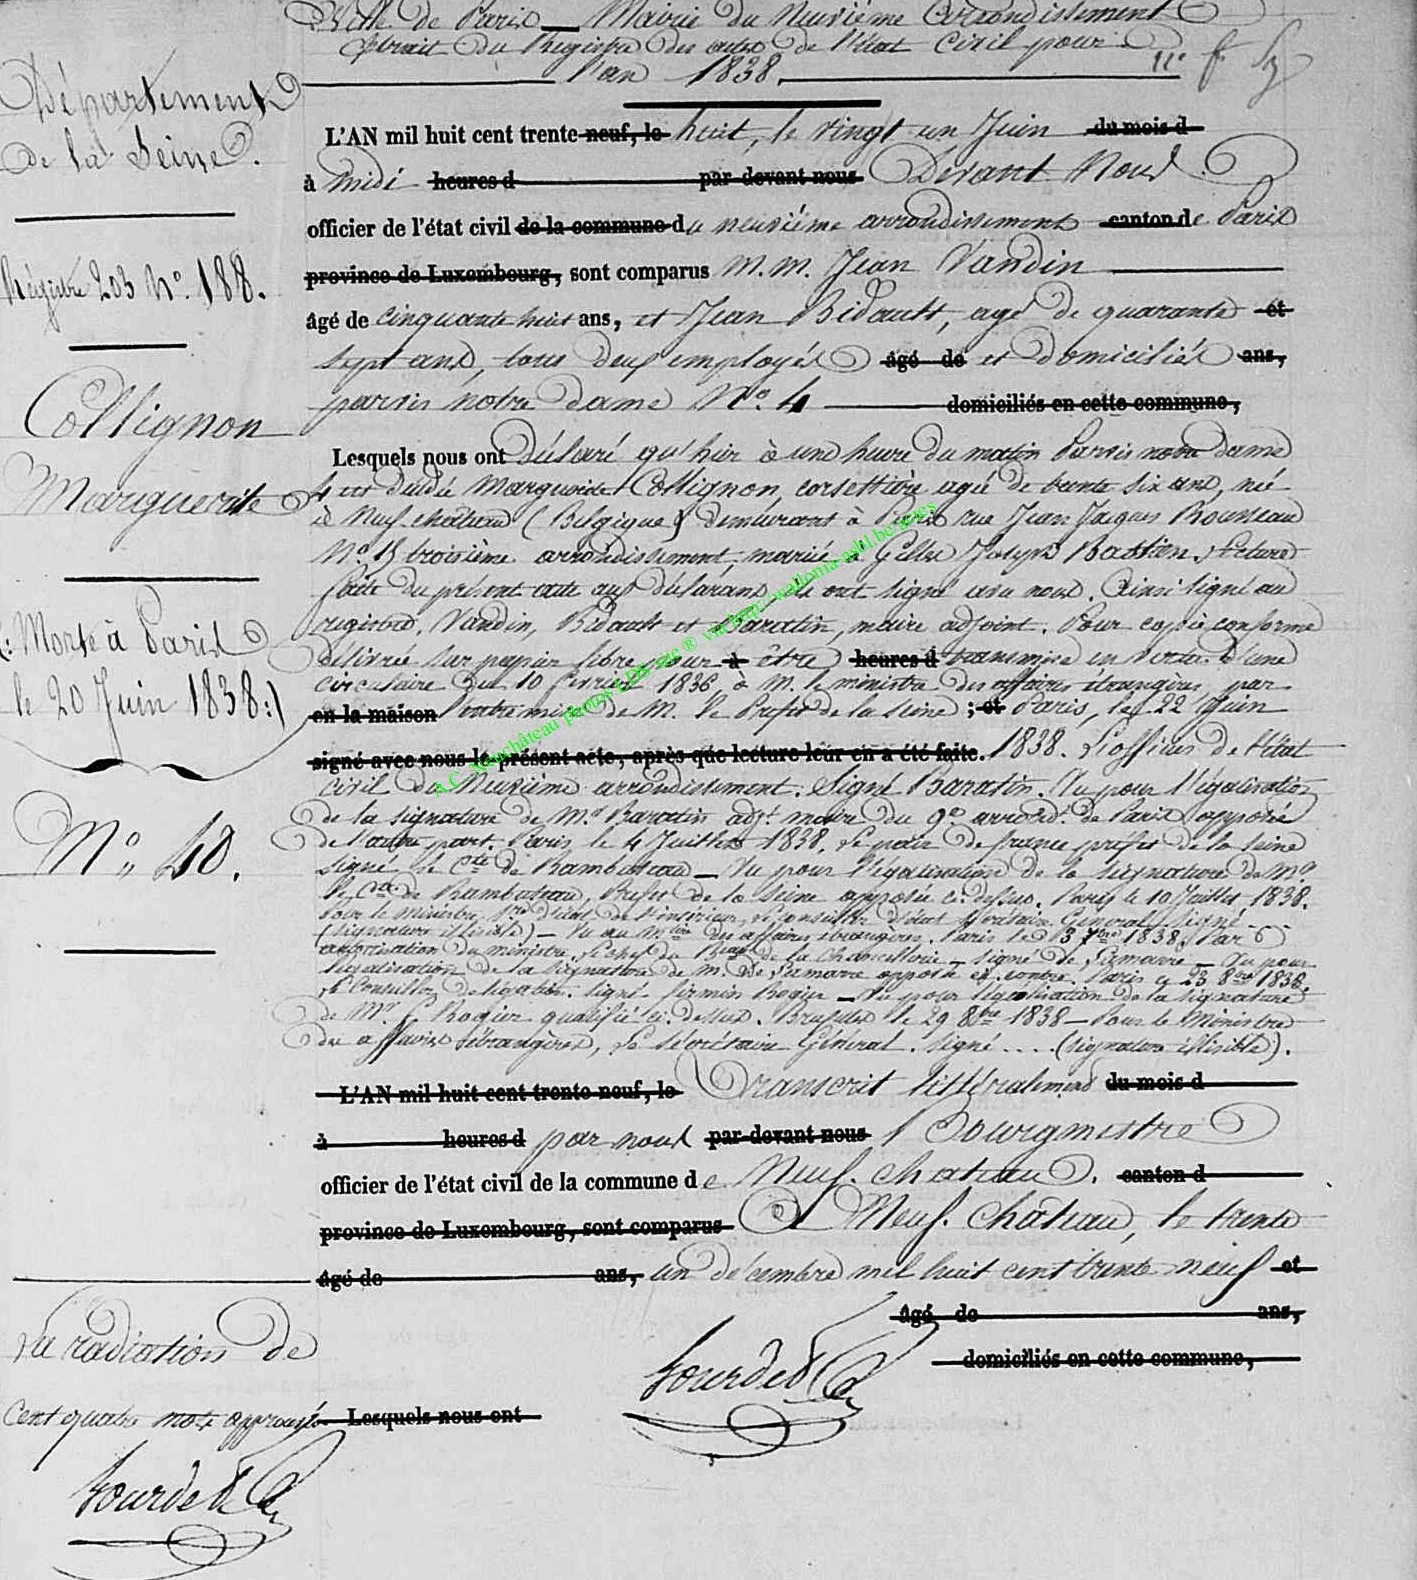 Ville de Paris — Mairie du Neuvième Arrondissement
Extrait du Registre des actes de l'état civil pour
l'an 1838.
11e f
Département
de la Seine.
Registre 203 No. 188.
Collignon
Marguerite
(: Morte à Paris
le 20 Juin 1838 :)
No. 40.
L'AN mil huit cent trente neuf, le huit, le vingt un Juin du mois d
à midi heures d par-devant nous Devant Nous
officier de l'état civil de la commune du neuvième arrondissement canton de Paris
province de Luxembourg, sont comparus M. M. Jean Vandin
âgé de cinquante huit ans, et Jean Bidault, agé de quarante et
sept ans, tous deux employés âgé de et domiciliés ans,
parvis notre dame No. 4 domiciliés en cette commune,
Lesquels nous ont déclaré qu'hier à une heure du matin Parvis notre dame
4 est décédée Marguerite Collignon, corsettière agée de trente six ans, née
à Neufchateau (Belgique) demeurant à Paris rue Jean Jacques Rousseau
No. 15 troisième arrondissement, mariée à Gilles Joseph Bastien. Lecture
faite du présent acte aux déclarans, ils ont signé avec nous. Ainsi signé au
registre. Vandin, Bidault et Baratin, maire adjoint. Pour copie conforme
délivrée sur papier libre pour à être heures d transmise en vertu d'une
circulaire du 10 février 1836 à M. le ministre des affaires étrangères, par
en la maison l'entremise de M. le Préfet de la Seine ; et Paris, le 22 Juin
signé avec nous le présent acte, après que lecture leur en a été faite. 1838. L'officier de l'état
civil du Neuvième arrondissement. Signé Baratin. Vu pour légalisation
de la signature de Mr Baratin adjt maire du 9e arrondt de Paris apposée
de l'autre part. Paris, le 4 Juillet 1838. Le pair de france préfet de la Seine
signé, le Cte de Rambuteau — Vu pour légalisation de la signature de Mr
le Cte de Rambuteau, Préfet de la Seine apposée ci-dessus. Paris le 10 Juillet 1838.
Pour le ministre, Sre d'état de l'intérieur, le conseiller d'état Secrétaire Général, signé ...
(signature illisible) — Vu au Mtère des affaires étrangères. Paris le 3 7bre 1838. Par
autorisation du ministre, Le chef du Bureau de la Chancellerie — signé de Lamarre — Vu pour
légalisation de la signature de M. de Lamarre apposée ci-contre. Paris ce 23 8bre 1838.
Le Conseiller de légation. signé firmin Rogier — Vu pour légalisation de la signature
de Mr f. Rogier qualifié ci-dessus. Bruxelles le 29 8bre 1838 — Pour le Ministre
des affaires Etrangères, Le secrétaire Général. signé .... (signature illisible).
L'AN mil huit cent trente neuf, le Transcrit littéralement du mois d
à heures d par nous par-devant nous Bourgmestre
officier de l'état civil de la commune de Neuf-chateau. canton d
province de Luxembourg, sont comparus A Neuf-château, le trente
âgé de ans, un décembre mil huit cent trente neuf et
âgé de ans,
domiciliés en cette commune,
La radiation de
cent quatre mots approuvée Lesquels nous ont
A.C. Neufchâteau photos LDS site ® via http://wallonia-asbl.be/actes